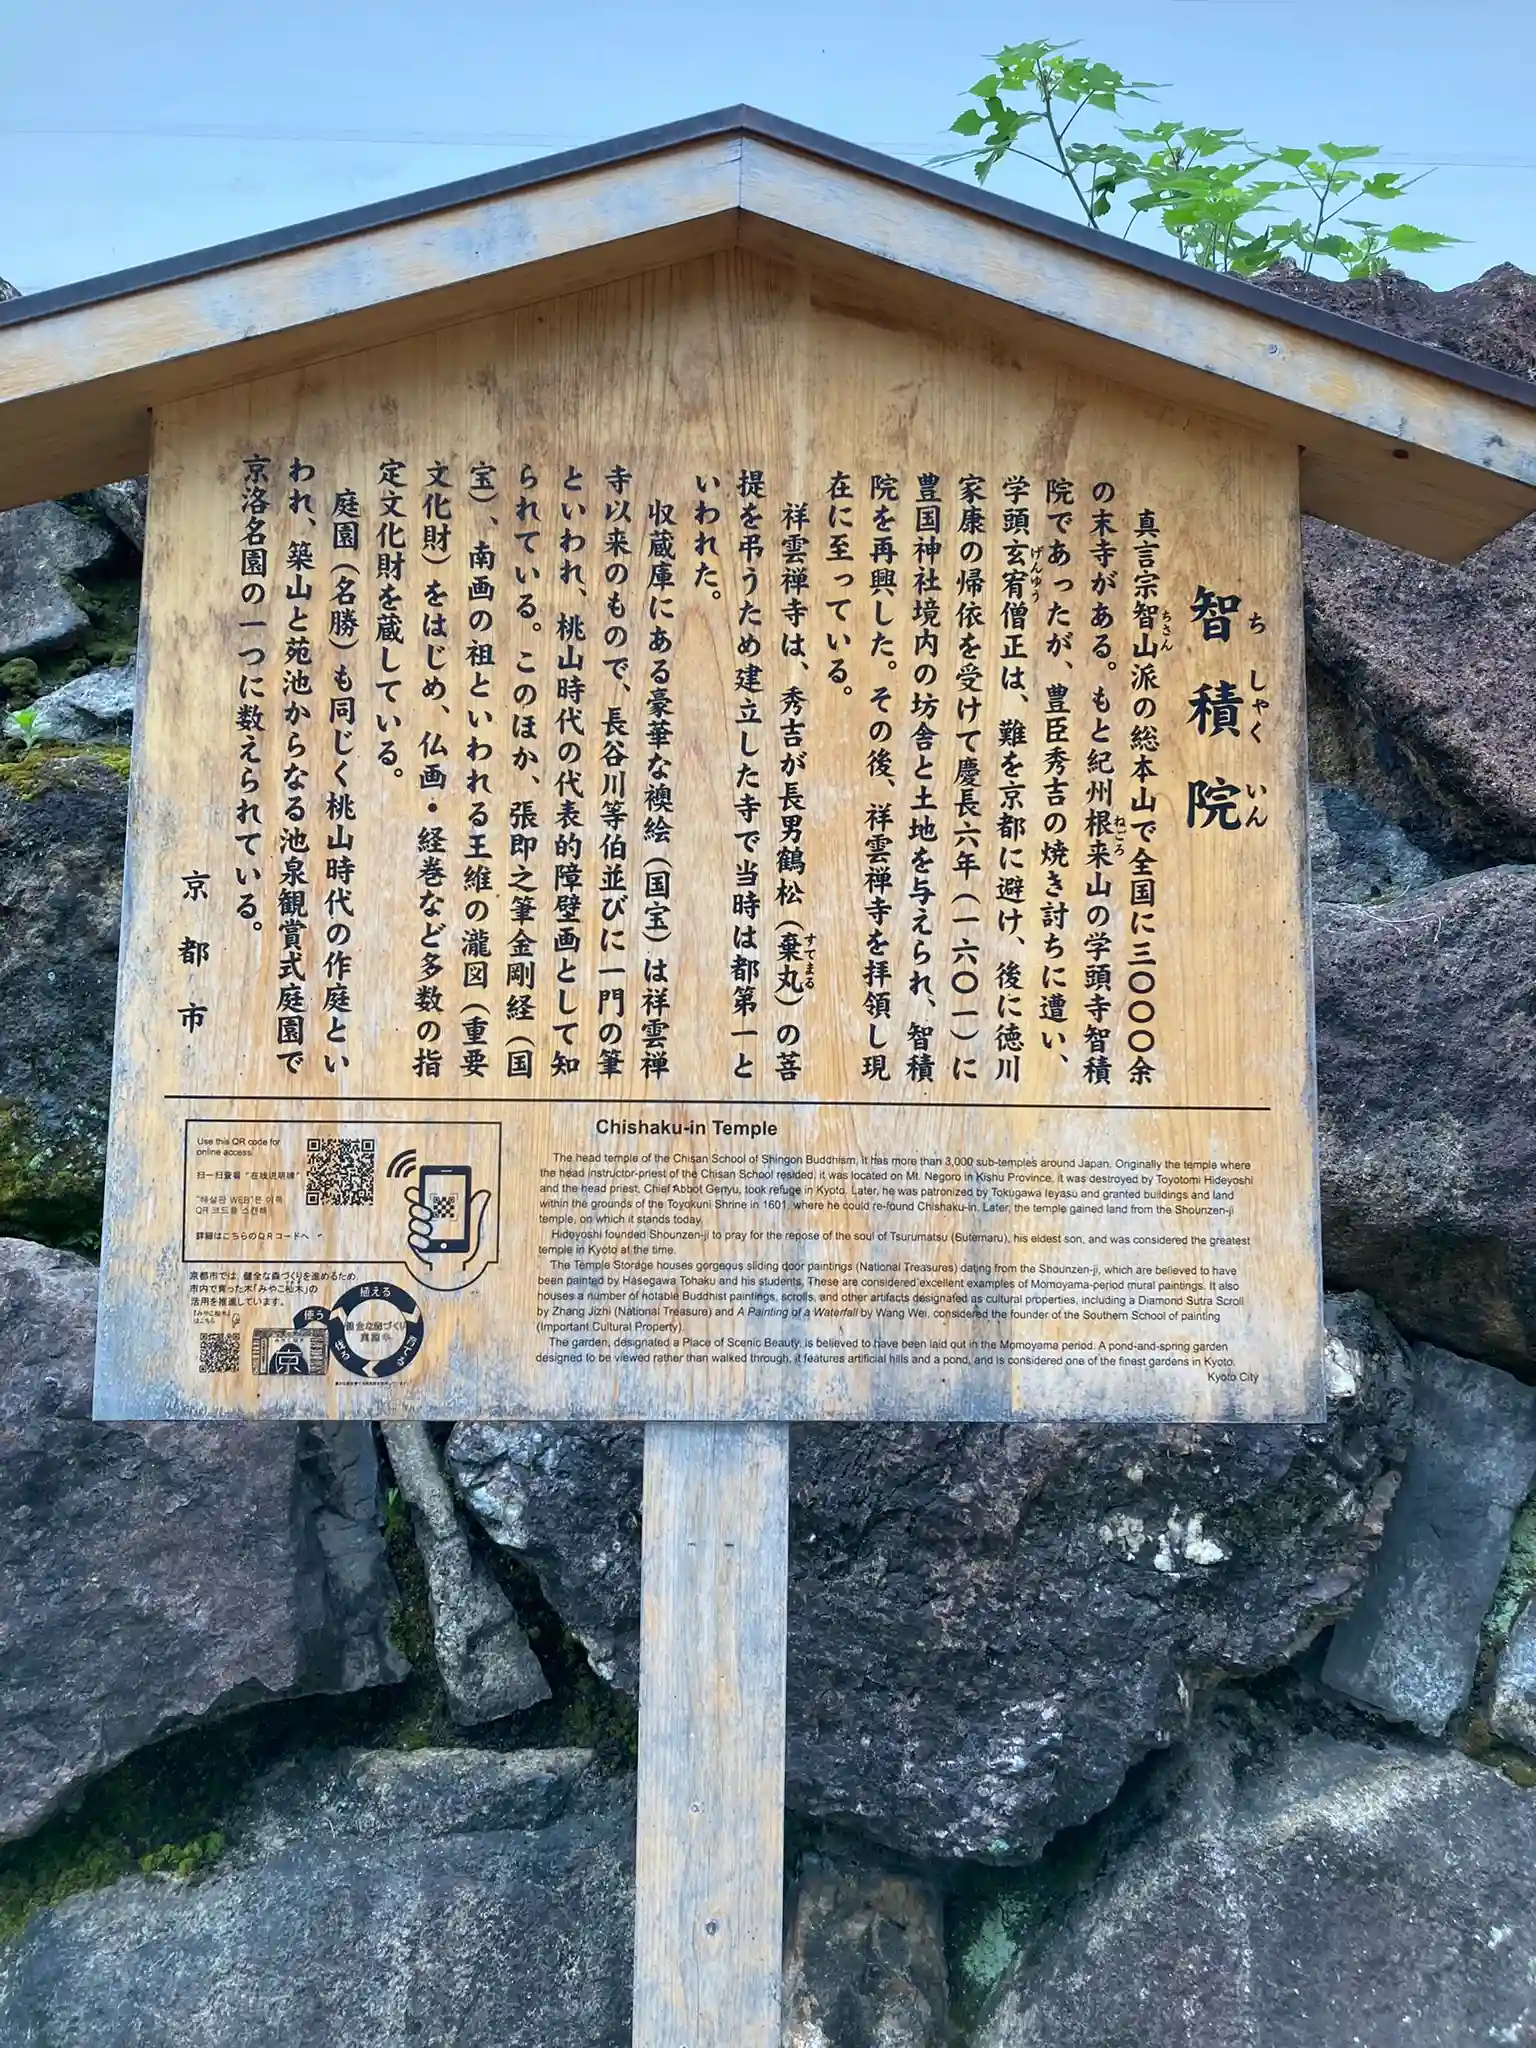 智積院
ちしゃくいん
真言宗智山派の総本山で全国に三〇〇〇余
ちさん
の末寺がある。もと紀州根来山の学頭寺智積
ねごろ
院であったが、豊臣秀吉の焼き討ちに遭い、
学頭玄宥僧正は、難を京都に避け、後に徳川
げんゆう
家康の帰依を受けて慶長六年(一六〇一)に
豊国神社境内の坊舎と土地を与えられ、智積
院を再興した。その後、祥雲禅寺を拝領し現
在に至っている。
祥雲禅寺は、秀吉が長男鶴松(棄丸)の菩
すてまる
提を弔うため建立した寺で当時は都第一と
いわれた。
収蔵庫にある豪華な襖絵(国宝)は祥雲禅
寺以来のもので、長谷川等伯並びに一門の筆
といわれ、桃山時代の代表的障壁画として知
られている。このほか、張即之筆金剛経(国
宝)、南画の祖といわれる王維の瀧図(重要
文化財)をはじめ、仏画・経巻など多数の指
定文化財を蔵している。
庭園(名勝)も同じく桃山時代の作庭とい
われ、築山と苑池からなる池泉観賞式庭園で
京洛名園の一つに数えられている。
京都市
Chishaku-in Temple
The head temple of the Chisan School of Shingon Buddhism, it has more than 3,000 sub-temples around Japan. Originally the temple where
the head instructor-priest of the Chisan School resided, it was located on Mt. Negoro in Kishu Province, it was destroyed by Toyotomi Hideyoshi
and the head priest, Chief Abbot Genyu, took refuge in Kyoto. Later, he was patronized by Tokugawa Ieyasu and granted buildings and land
within the grounds of the Toyokuni Shrine in 1601, where he could re-found Chishaku-in. Later, the temple gained land from the Shounzen-ji
temple, on which it stands today.
Hideyoshi founded Shounzen-ji to pray for the repose of the soul of Tsurumatsu (Sutemaru), his eldest son, and was considered the greatest
temple in Kyoto at the time.
The Temple Storage houses gorgeous sliding door paintings (National Treasures) dating from the Shounzen-ji, which are believed to have
been painted by Hasegawa Tohaku and his students. These are considered excellent examples of Momoyama-period mural paintings. It also
houses a number of notable Buddhist paintings, scrolls, and other artifacts designated as cultural properties, including a Diamond Sutra Scroll
by Zhang Jizhi (National Treasure) and A Painting of a Waterfall by Wang Wei, considered the founder of the Southern School of painting
(Important Cultural Property).
The garden, designated a Place of Scenic Beauty, is believed to have been laid out in the Momoyama period. A pond-and-spring garden
designed to be viewed rather than walked through, it features artificial hills and a pond, and is considered one of the finest gardens in Kyoto.
Kyoto City
Use this QR code for
online access.
扫一扫查看“在线说明牌”
"해설판 WEB"은 이쪽
QR 코드를 스캔해
詳細はこちらのQRコードへ
京都市では、健全な森づくりを進めるため
市内で育った木「みやこ杣木」の
活用を推進しています。
「みやこ杣木」
はこちら
使う
植える
育てる
京